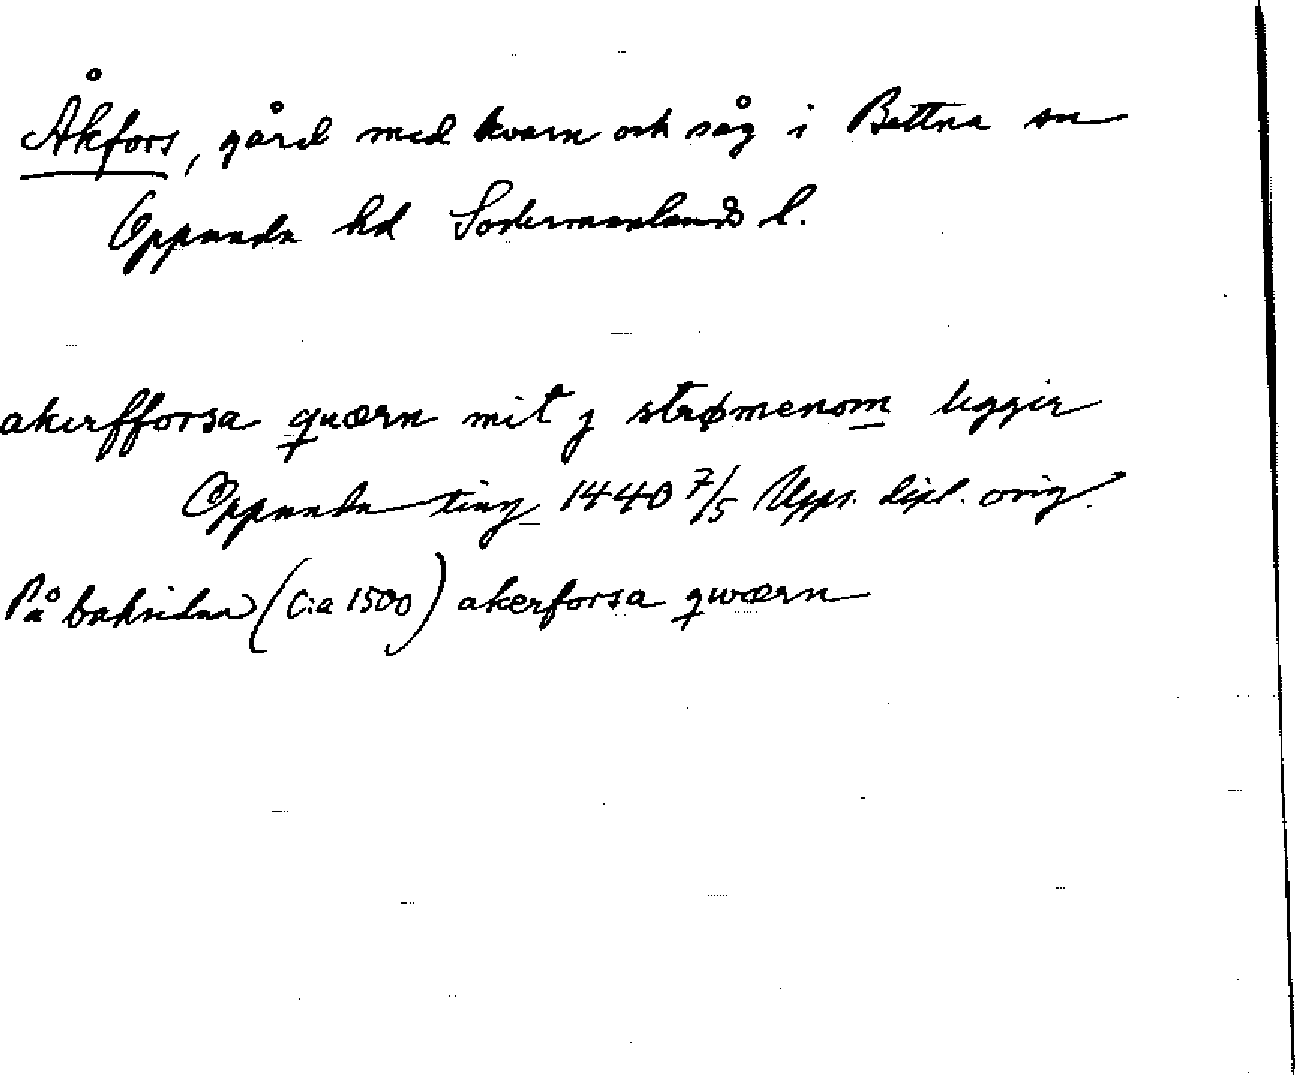 Åkfors, gård med kvarn och såg i Bettna sn
Oppunda hd Södermanlands l.
akerfforsa quærn mit j strømenom liggir
Oppunda ting 1440 7/5 Upps. dipl. orig.
På baksidan (C:a 1500) akerforsa qwærn